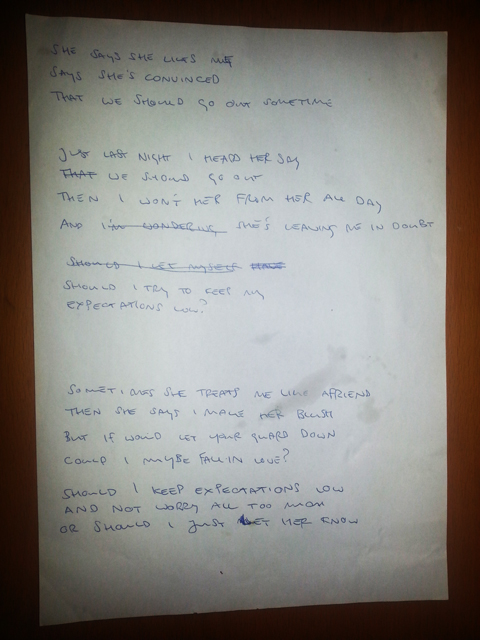 SHE SAYS SHE LIKES ME
SAYS SHE'S CONVINCED
THAT WE SHOULD GO OUT SOMETIME
JUST LAST NIGHT I HEARD HER SAY
THAT WE SHOULD GO OUT
THEN I WON'T HER FROM HER ALL DAY
AND I'M WONDERING SHE'S LEAVING ME IN DOUBT
SHOULD I LET MYSELF HAVE
SHOULD I TRY TO KEEP MY
EXPECTATIONS LOW?
SOMETIMES SHE TREATS ME LIKE A FRIEND
THEN SHE SAYS I MAKE HER BLUSH
BUT IF WOULD LET YOUR GUARD DOWN
COULD I MAYBE FALL IN LOVE?
SHOULD I KEEP EXPECTATIONS LOW
AND NOT WORRY ALL TOO MUCH
OR SHOULD I JUST LET HER KNOW